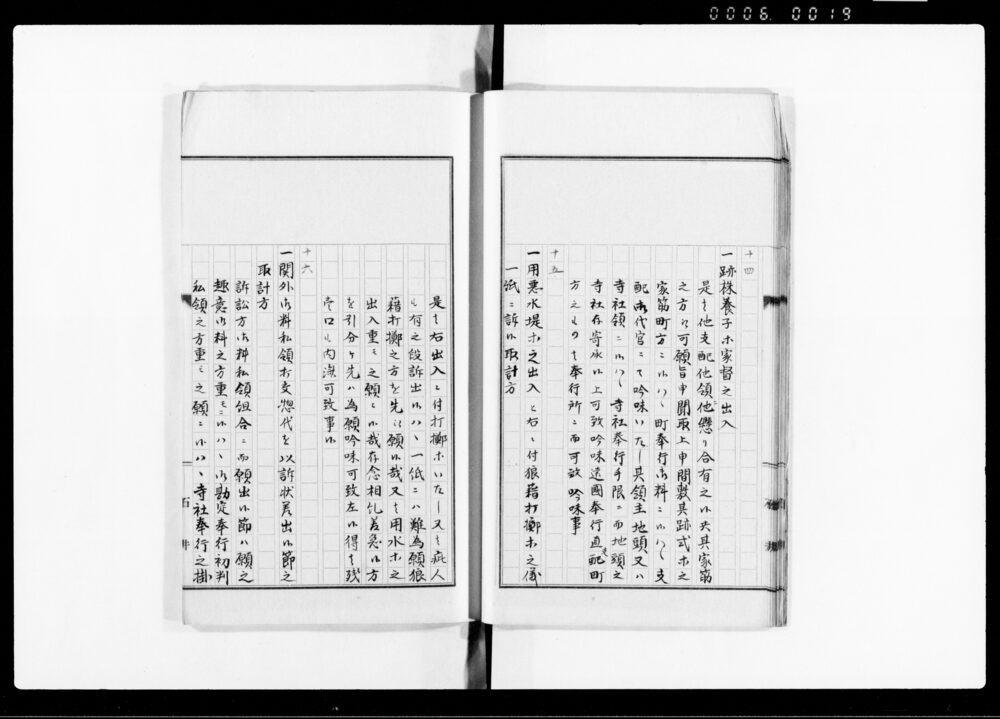 0006 0019
十四
一跡株養子ホ家督之出入
是ハ他支配他領他懸り合有之候共其家筋
之方ゟ可願旨申聞取上申聞数其跡式ホ之
家筋町方ニ候ハヽ町奉行御料ニ候ハヽ支
配御代官ニて吟味いたし其領主地頭又ハ
寺社領ニ候ハヽ寺社奉行手限ニ而地頭之
寺社在寄承候上可致吟味遠國奉行直支配町
方之もの者奉行所ニ而可致吟味事
十五
一用悪水堤ホ之出入と右ニ付狼藉打擲ホ之儀
一紙ニ訴候取計方
是者右出入ニ付打擲ホいたし又者疵人
も有之段訴出候ハヽ一紙ニハ難為願狼
藉打擲之方を先ニ願候哉又者用水ホ之
出入重モ之願ニ候哉存念相糺差急候方
を引分ケ先ハ為願吟味可致左候得者残
壱口も内済可致事候
十六
一関外御料私領村々惣代を以訴状差出候節之
取計方
訴訟方御料私領組合ニ而願出候節ハ願之
趣意御料之方重モニ候ハヽ御勘定奉行初判
私領之方重モ之願ニ候ハヽ寺社奉行之掛